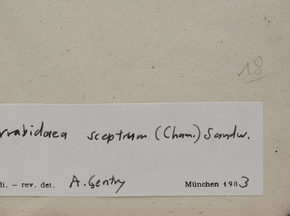 18
rrabidaea sceptrum (Cham.) Sandw.
di. – rev. det. A. Gentry München 1983